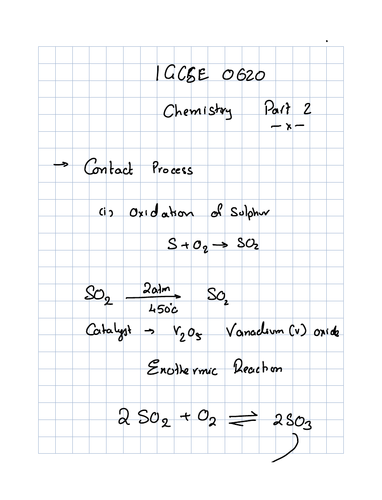 IGCSE 0620
Chemistry Part 2
-x-
→ Contact Process
(i) Oxidation of Sulphur
S + O₂ → SO₂
SO₂ 2atm → 450°C SO₂
Catalyst → V₂O₅ Vanadium (V) oxide
Exothermic Reaction
2 SO₂ + O₂ ⇌ 2SO₃